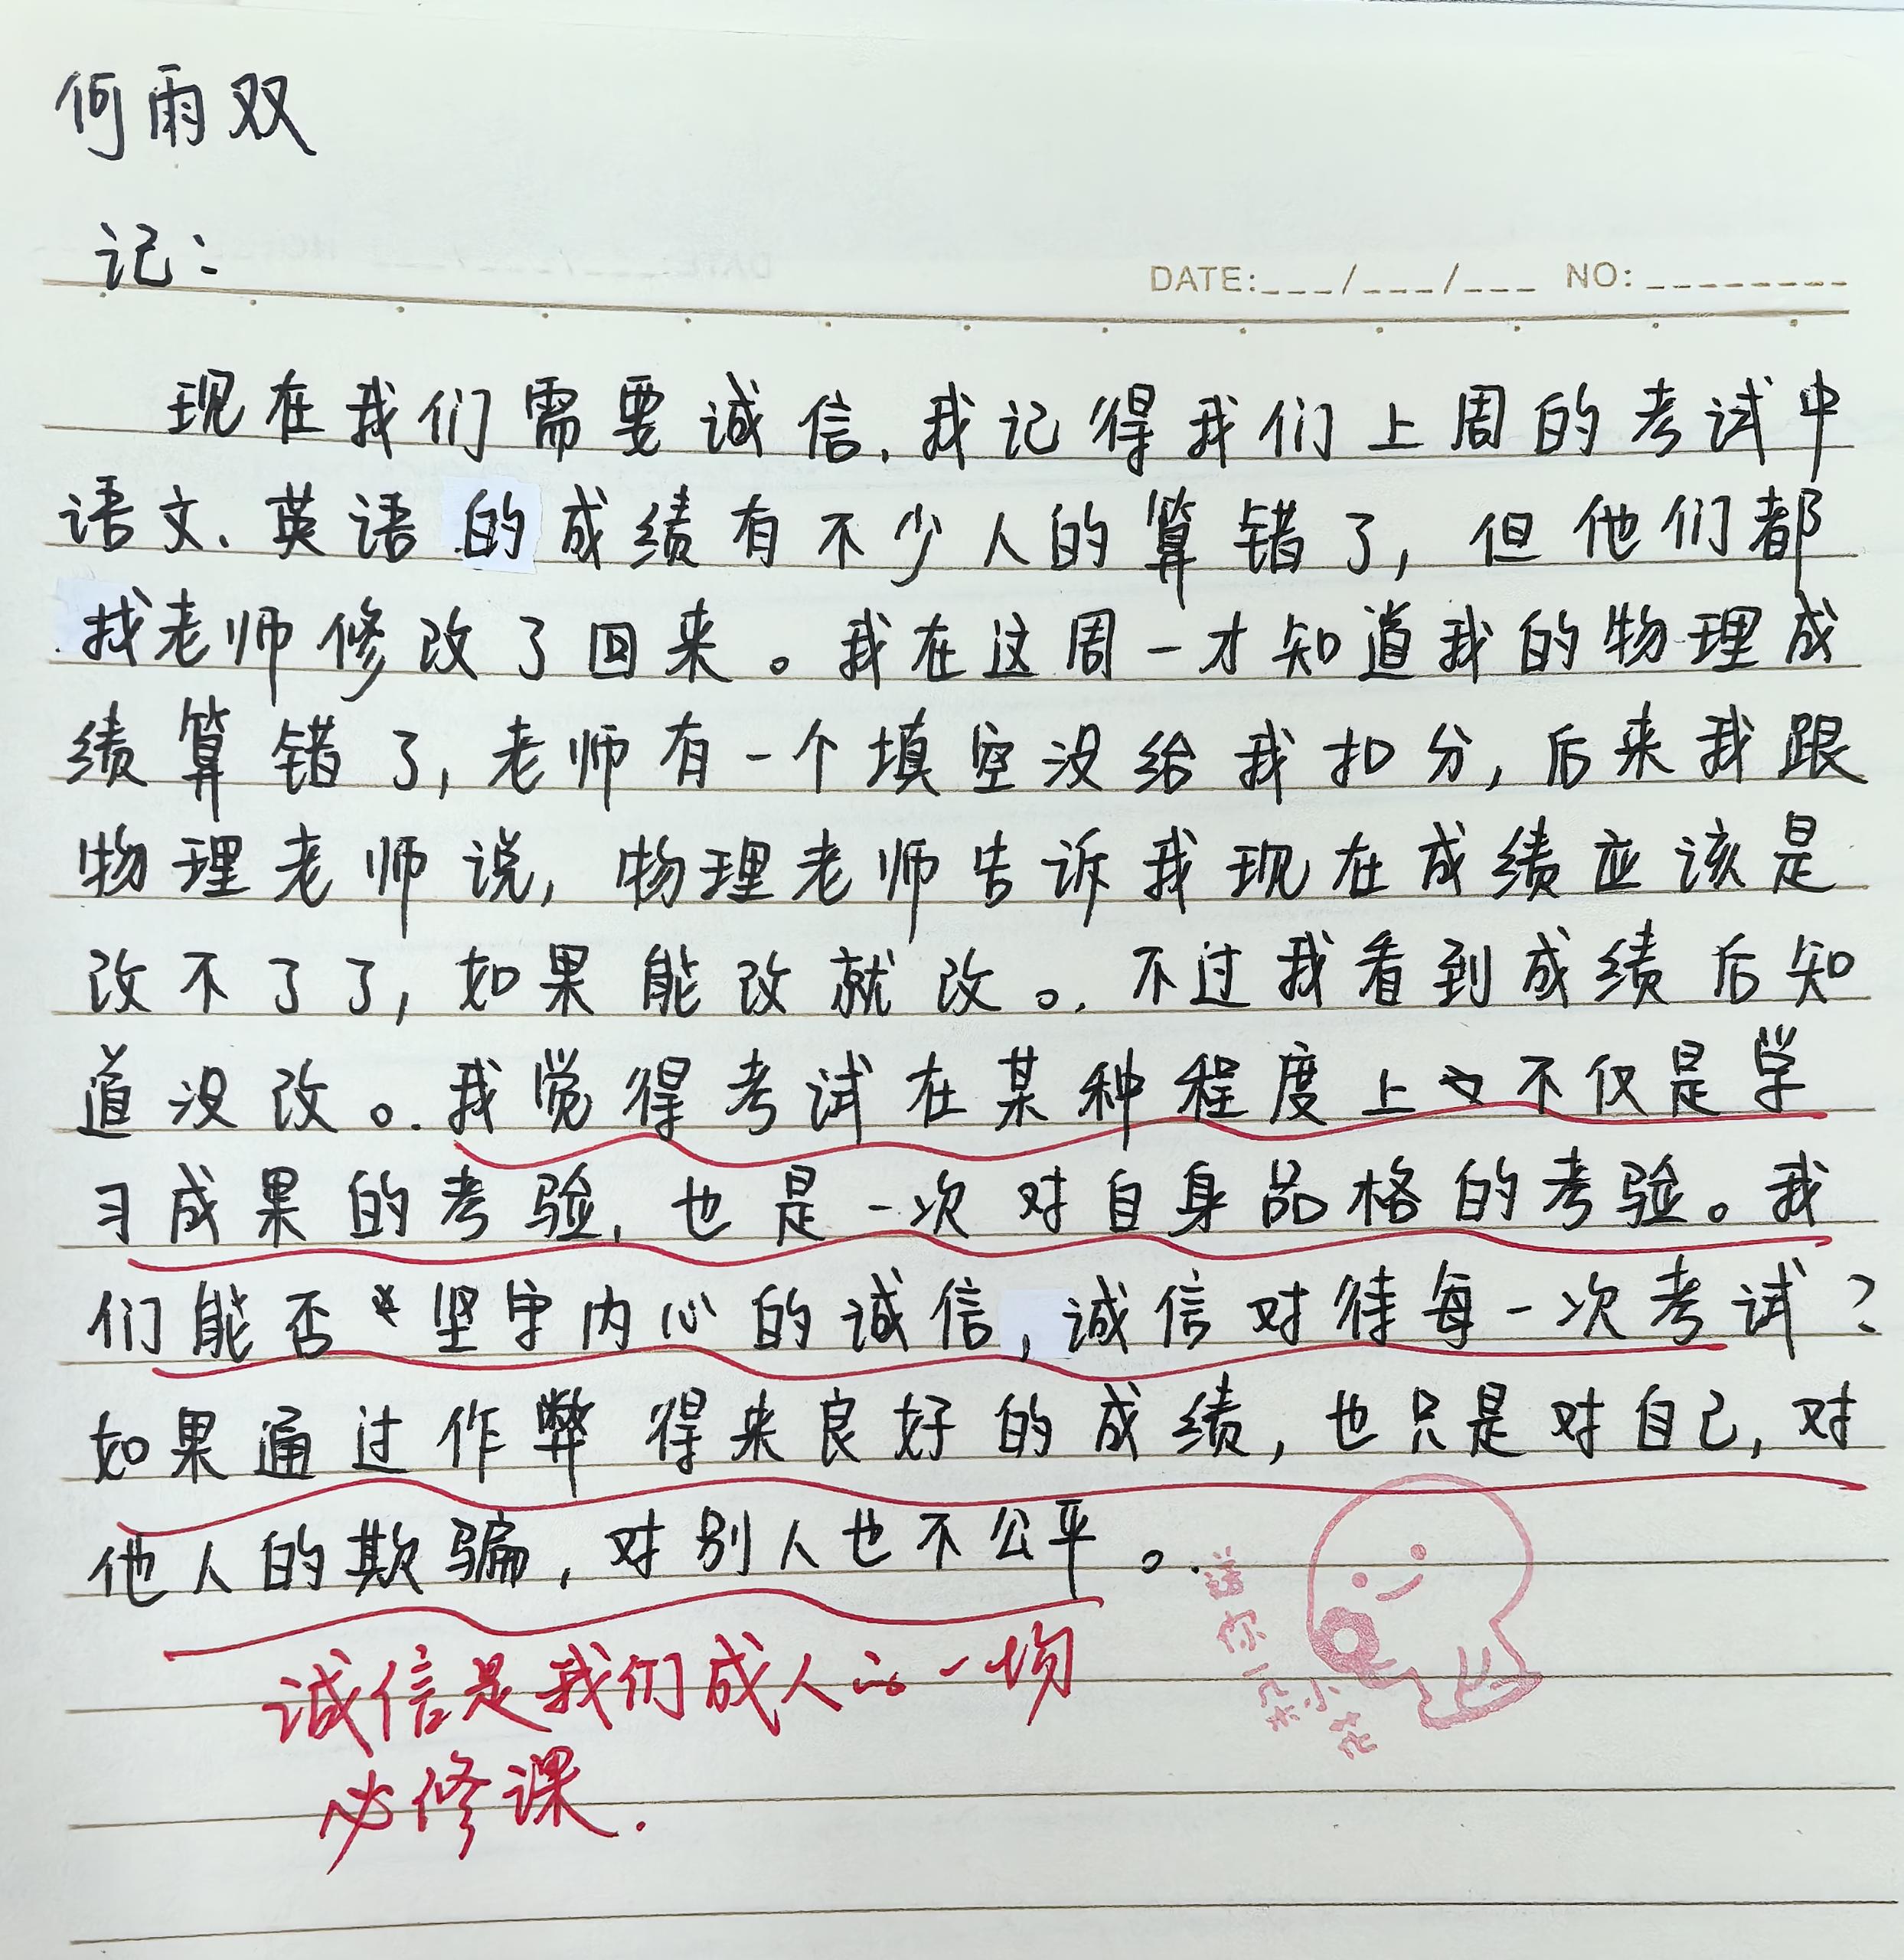 何雨双
记：
DATE:___/___/___ NO:________
现在我们需要诚信，我记得我们上周的考试中
语文、英语的成绩有不少人的算错了，但他们都
找老师修改了回来。我在这周一才知道我的物理成
绩算错了，老师有一个填空没给我扣分，后来我跟
物理老师说，物理老师告诉我现在成绩应该是
改不了了，如果能改就改。不过我看到成绩后知
道没改。我觉得考试在某种程度上不仅是学
习成果的考验，也是一次对自身品格的考验。我
们能否坚守内心的诚信，诚信对待每一次考试？
如果通过作弊得来良好的成绩，也只是对自己，对
他人的欺骗，对别人也不公平。
送你一朵小花
诚信是我们成人的一场
必修课.